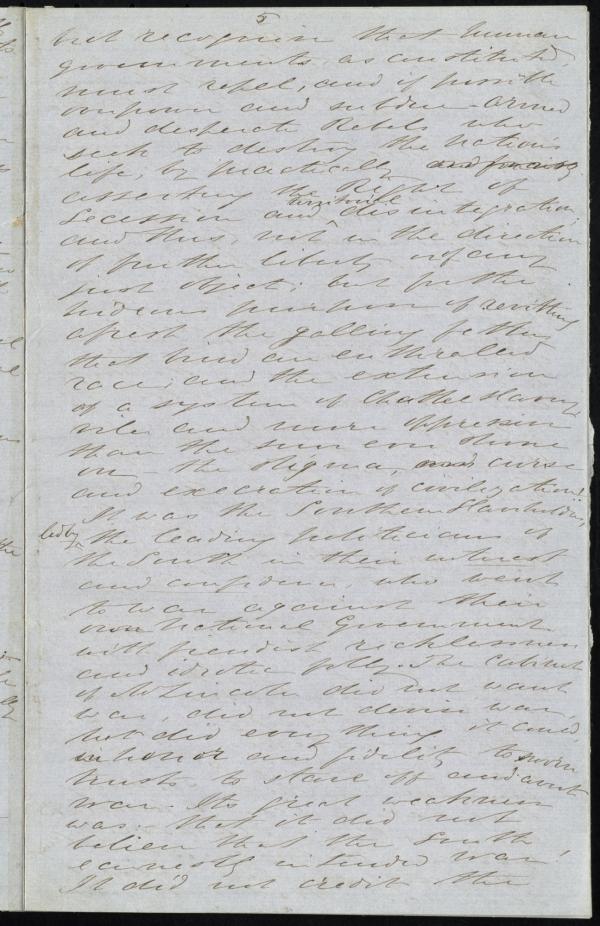 5
but recognise that human
governments, as constituted,
must repel, and if possible
overpower and subdue - armed
and desperate Rebels who
seek to destroy the Nation's
life, by practically and forcibly
asserting the Right of
Secession and territorial disintegration,
and thus, not in the direction
of further liberty or any
just object: but for the
hideous purpose of rivetting
afresh the galling fetters
that bind an enthralled
race; and the extension
of a system of Chattel Slavery
viler and more oppressive
than the sun ever shone
on - the stigma, and curse
and execration of civilization!
It was the Southern Slaveholders,
led by the leading politicians of
the South in their interest
and confidence, who went
to war against their
own National Government
with fiendish recklessness
and idiotic folly. The Cabinet
of A. Lincoln did not want
war, did not devise war,
but did everything it could
in honor and fidelity to sworn
trusts to stave off and avert
war. Its great weakness
was that it did not
believe that the South
earnestly intended war!
It did not credit the